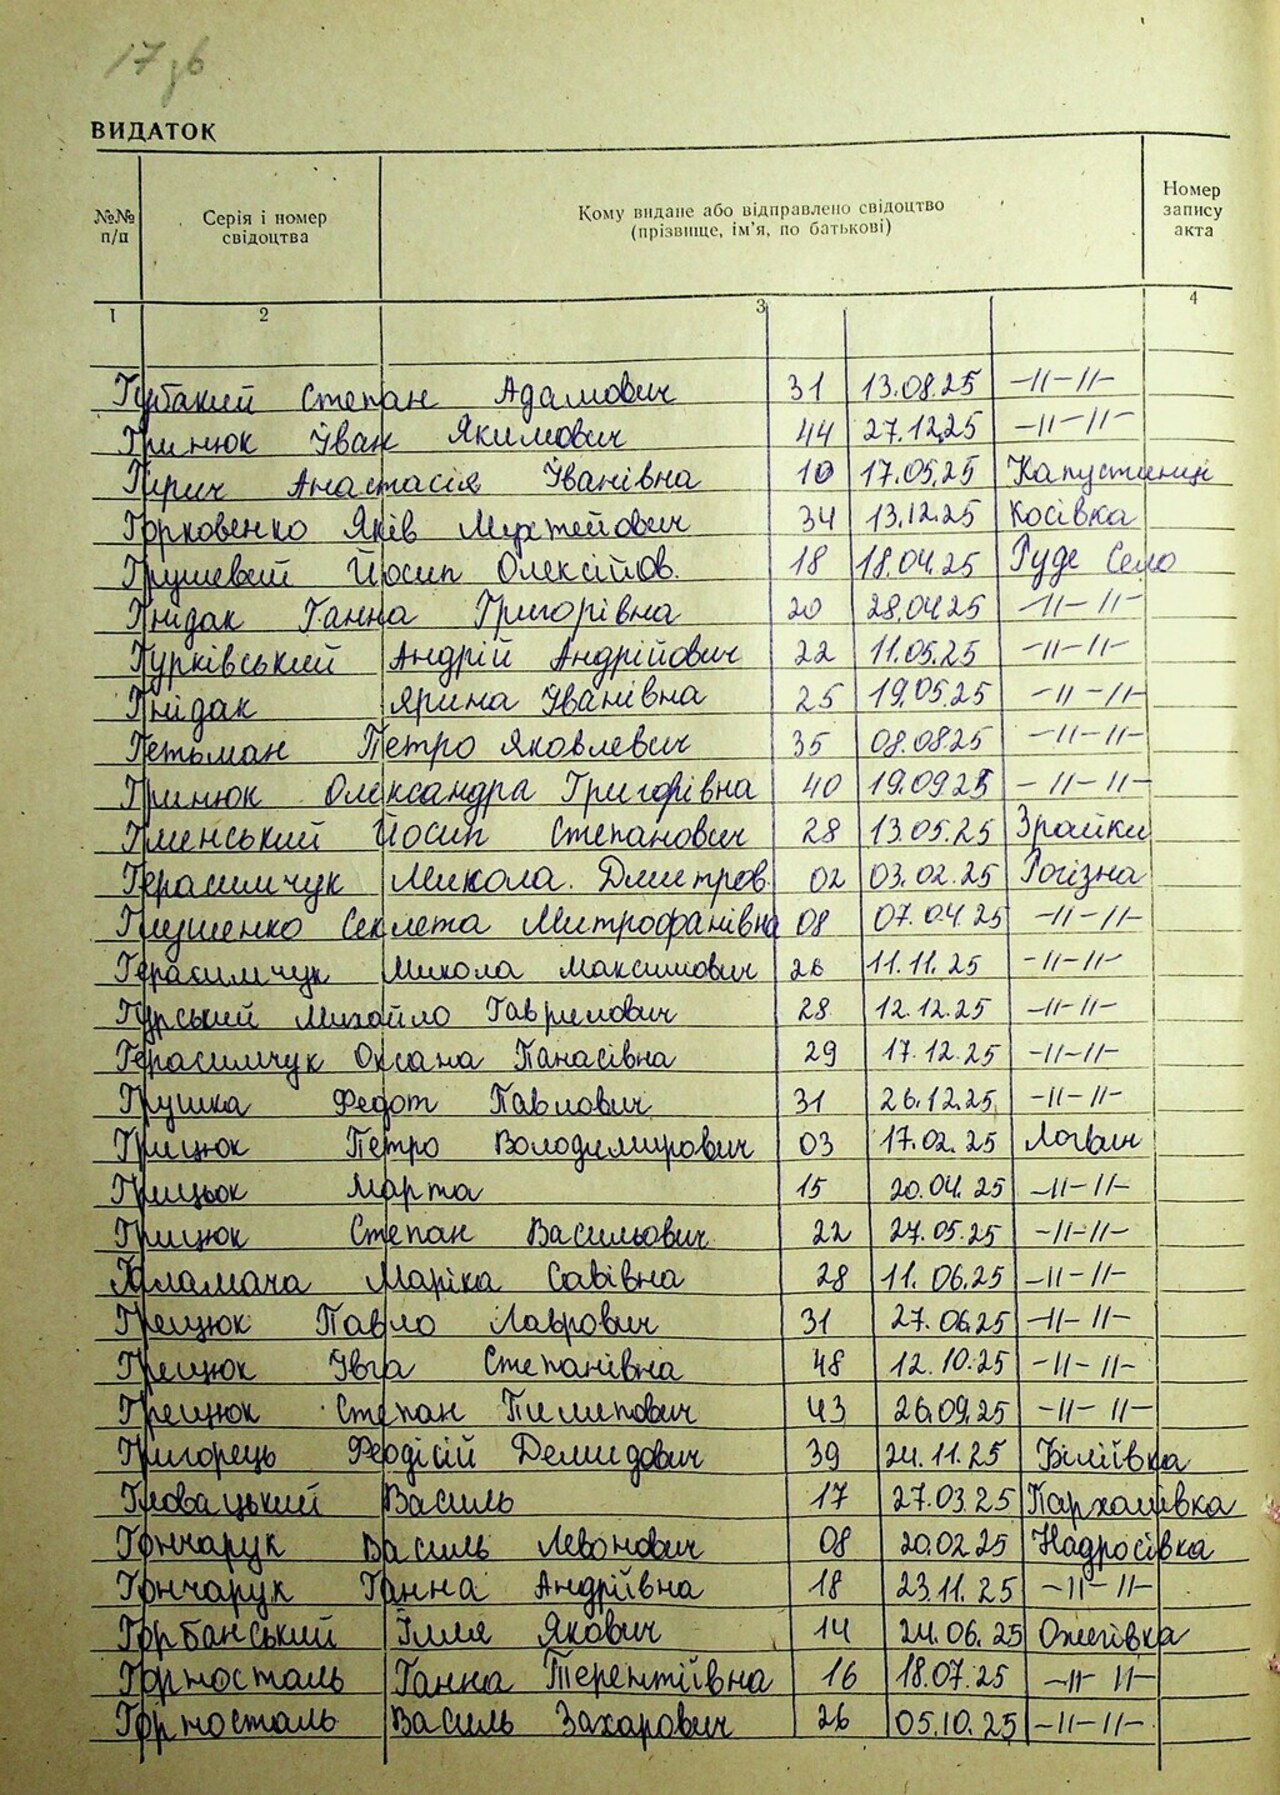 17зв
ВИДАТОК
№№ п/п Серія і номер свідоцтва Кому видане або відправлено свідоцтво (прізвище, ім'я, по батькові) Номер запису акта
1 2 3 4
Губакий Степан Адамович 31 13.08.25 –//–//–
Гринюк Іван Якимович 44 27.12.25 –//–//–
Гирич Анастасія Іванівна 10 17.05.25 Капустинці
Горковенко Яків Мусійович 34 13.12.25 Косівка
Грушевий Йосип Олексійов. 18 18.04.25 Руде Село
Гнідак Ганна Григорівна 20 28.04.25 –//–//–
Гурківський Андрій Андрійович 22 11.05.25 –//–//–
Гнідак Ярина Іванівна 25 19.05.25 –//–//–
Гетьман Петро Яковлевич 35 08.08.25 –//–//–
Гринюк Олександра Григорівна 40 19.09.25 –//–//–
Гменський Йосип Степанович 28 13.05.25 Зрайки
Герасимчук Микола Дмитров. 02 03.02.25 Рогізна
Глущенко Секлета Митрофанівна 08 07.04.25 –//–//–
Герасимчук Микола Максимович 26 11.11.25 –//–//–
Гурський Михайло Гаврилович 28 12.12.25 –//–//–
Герасимчук Оксана Панасівна 29 17.12.25 –//–//–
Грушка Федот Павлович 31 26.12.25 –//–//–
Грицюк Петро Володимирович 03 17.02.25 Логвин
Грицьок Марта 15 20.04.25 –//–//–
Грицюк Степан Васильович 22 27.05.25 –//–//–
Галамага Маріка Савівна 28 11.06.25 –//–//–
Грецюк Павло Лаврович 31 27.06.25 –//–//–
Грецюк Ївга Степанівна 48 12.10.25 –//–//–
Грецюк Степан Пилипович 43 26.09.25 –//–//–
Григорець Феодісій Демидович 39 24.11.25 Біліївка
Гловацький Василь 17 27.03.25 Пархомівка
Гончарук Василь Левонович 08 20.02.25 Надросівка
Гончарук Ганна Андріївна 18 23.11.25 –//–//–
Горбанський Ілля Якович 14 24.06.25 Ожегівка
Горносталь Ганна Терентіївна 16 18.07.25 –// //–
Горносталь Василь Захарович 26 05.10.25 –//–//–